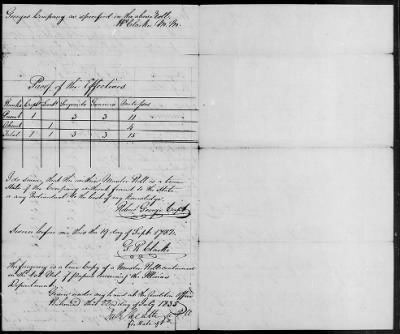 Georges Company as specified in the above Roll.
W Clarke M. M.
Proof of the Effectives
Ranks Capt Lieut Serjeants Gunners
Presnt 1 3 3 11
Absent 1 4
Total 1 1 3 3 15
I do swear, that the within Muster Roll is a true
state of the Company without fraud to the State
or any Individual to the best of my knowledge
Robert George Capt
Sworn before me this the 19 day of Sept 1782.
G R Clark
The foregoing is a true Copy of a Muster Roll contained
in the Book of papers concerning the Illinois
Department.
Given under my hand at the Auditors Office
Richmond this 22nd day of July 1835